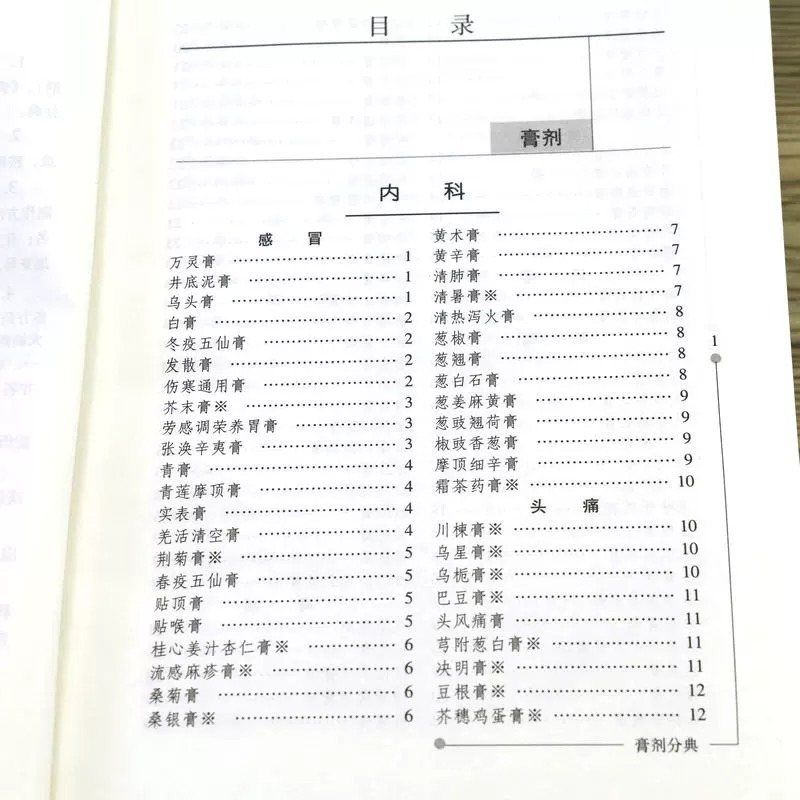 目 录
膏剂
内 科
感 冒
万灵膏 ………………… 1
井底泥膏 ………………… 1
乌头膏 ………………… 1
白膏 ………………… 2
冬疫五仙膏 ………………… 2
发散膏 ………………… 2
伤寒通用膏 ………………… 2
芥末膏※ ………………… 3
劳感调荣养胃膏 ………………… 3
张涣辛夷膏 ………………… 3
青膏 ………………… 4
青莲摩顶膏 ………………… 4
实表膏 ………………… 4
羌活清空膏 ………………… 4
荆菊膏※ ………………… 5
春疫五仙膏 ………………… 5
贴顶膏 ………………… 5
贴喉膏 ………………… 5
桂心姜汁杏仁膏※ ………………… 6
流感麻疹膏※ ………………… 6
桑菊膏 ………………… 6
桑银膏※ ………………… 6
黄术膏 ………………… 7
黄辛膏 ………………… 7
清肺膏 ………………… 7
清暑膏※ ………………… 7
清热泻火膏 ………………… 8
葱椒膏 ………………… 8
葱翘膏 ………………… 8
葱白石膏 ………………… 8
葱姜麻黄膏 ………………… 9
葱豉翘荷膏 ………………… 9
椒豉香葱膏 ………………… 9
摩顶细辛膏 ………………… 9
霜茶药膏※ ………………… 10
头 痛
川楝膏※ ………………… 10
乌星膏※ ………………… 10
乌栀膏※ ………………… 10
巴豆膏※ ………………… 11
头风痛膏 ………………… 11
芎附葱白膏※ ………………… 11
决明膏※ ………………… 11
豆根膏※ ………………… 12
芥穗鸡蛋膏※ ………………… 12
1
膏剂分典